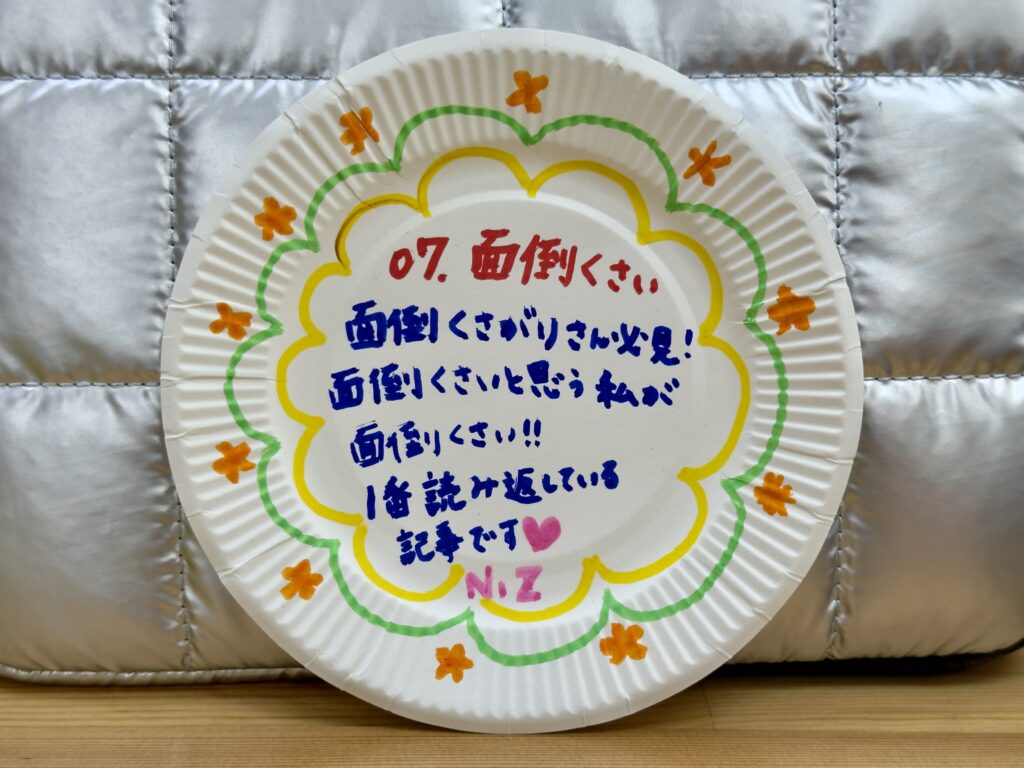 07. 面倒くさい
面倒くさがりさん必見!
面倒くさいと思う私が
面倒くさい!!
1番読み返している
記事です♥
N.Z